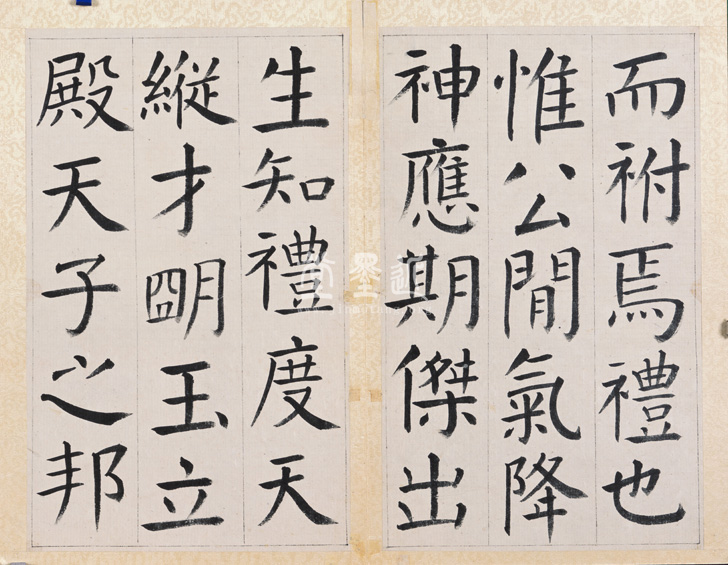 而祔焉禮也
惟公閒氣降
神應期傑出
生知禮度天
縱才朙玉立
殿天子之邦